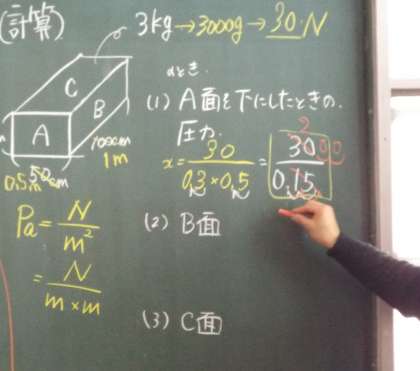 (計算)
3kg→3000g→30・N
のとき.
(1) A面を下にしたときの.
圧力.
C
B
A
100cm
1m
50cm
0.5m
x = 30 / 0.3×0.5 = 3000 / 0.15
2
Pa = N / m²
= N / m×m
(2) B面
(3) C面